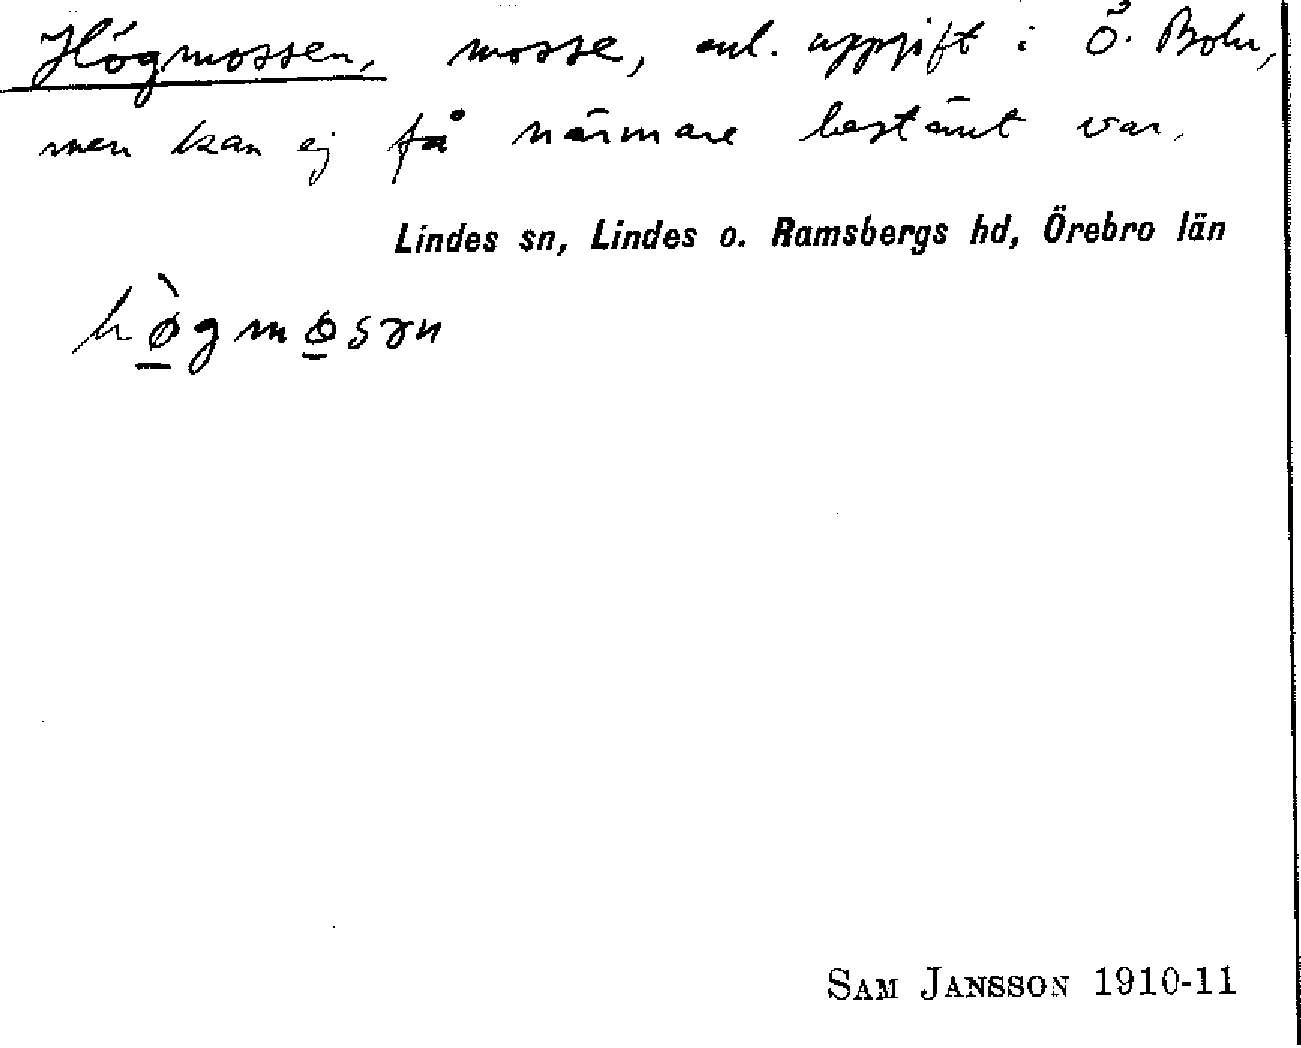 Högmossen, mosse, enl. uppgift i Ö. Bohr,
men kan ej få närmare bestämt var.
Lindes sn, Lindes o. Ramsbergs hd, Örebro län
hø̲̀gmø̲sən
SAM JANSSON 1910-11